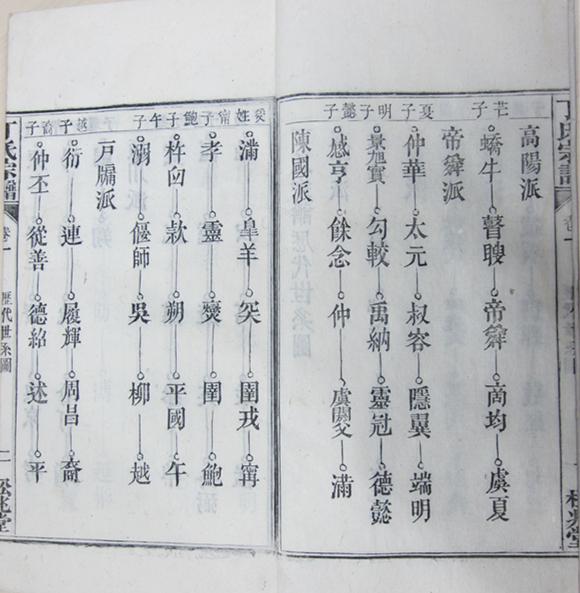 芒子
夏子
明子
懿子
高陽派
蟜牛 瞽瞍 帝舜 商均 虞夏
帝舜派
仲華 太元 叔容 隱翼 端明
勾較 禹納 靈冠 德懿
感亨 餘念 仲 虞閼父 滿
陳國派
甯子
鮑子
午子
越子
滿 皐羊 突 圉戎 甯
孝 靈 燮 圉 鮑
杵臼 款 朔 平國 午
溺 偃師 吳 柳 越
戶牖派
衍 連 履輝 周昌 裔
仲丕 從善 德紹 述 平
丁氏宗譜 卷一 歷代世系圖 二